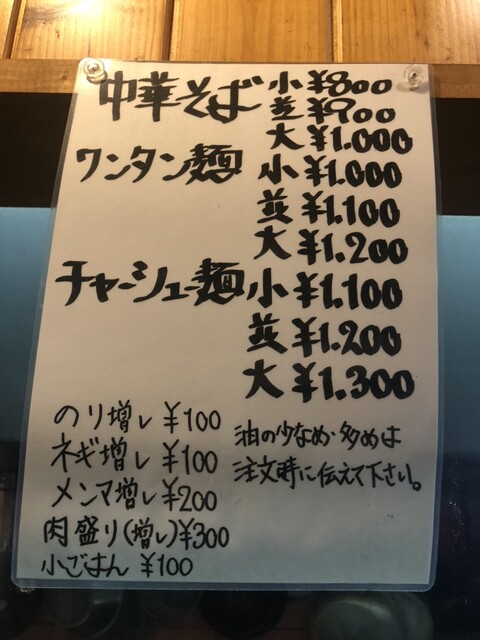 中華そば 小 ¥800
並 ¥900
大 ¥1.000
ワンタン麺 小 ¥1.000
並 ¥1.100
大 ¥1.200
チャーシュー麺 小 ¥1.100
並 ¥1.200
大 ¥1.300
のり増し ¥100
ネギ増し ¥100
メンマ増し ¥200
肉盛り(増し) ¥300
小ごはん ¥100
油の少なめ・多めは
注文時に伝えて下さい。